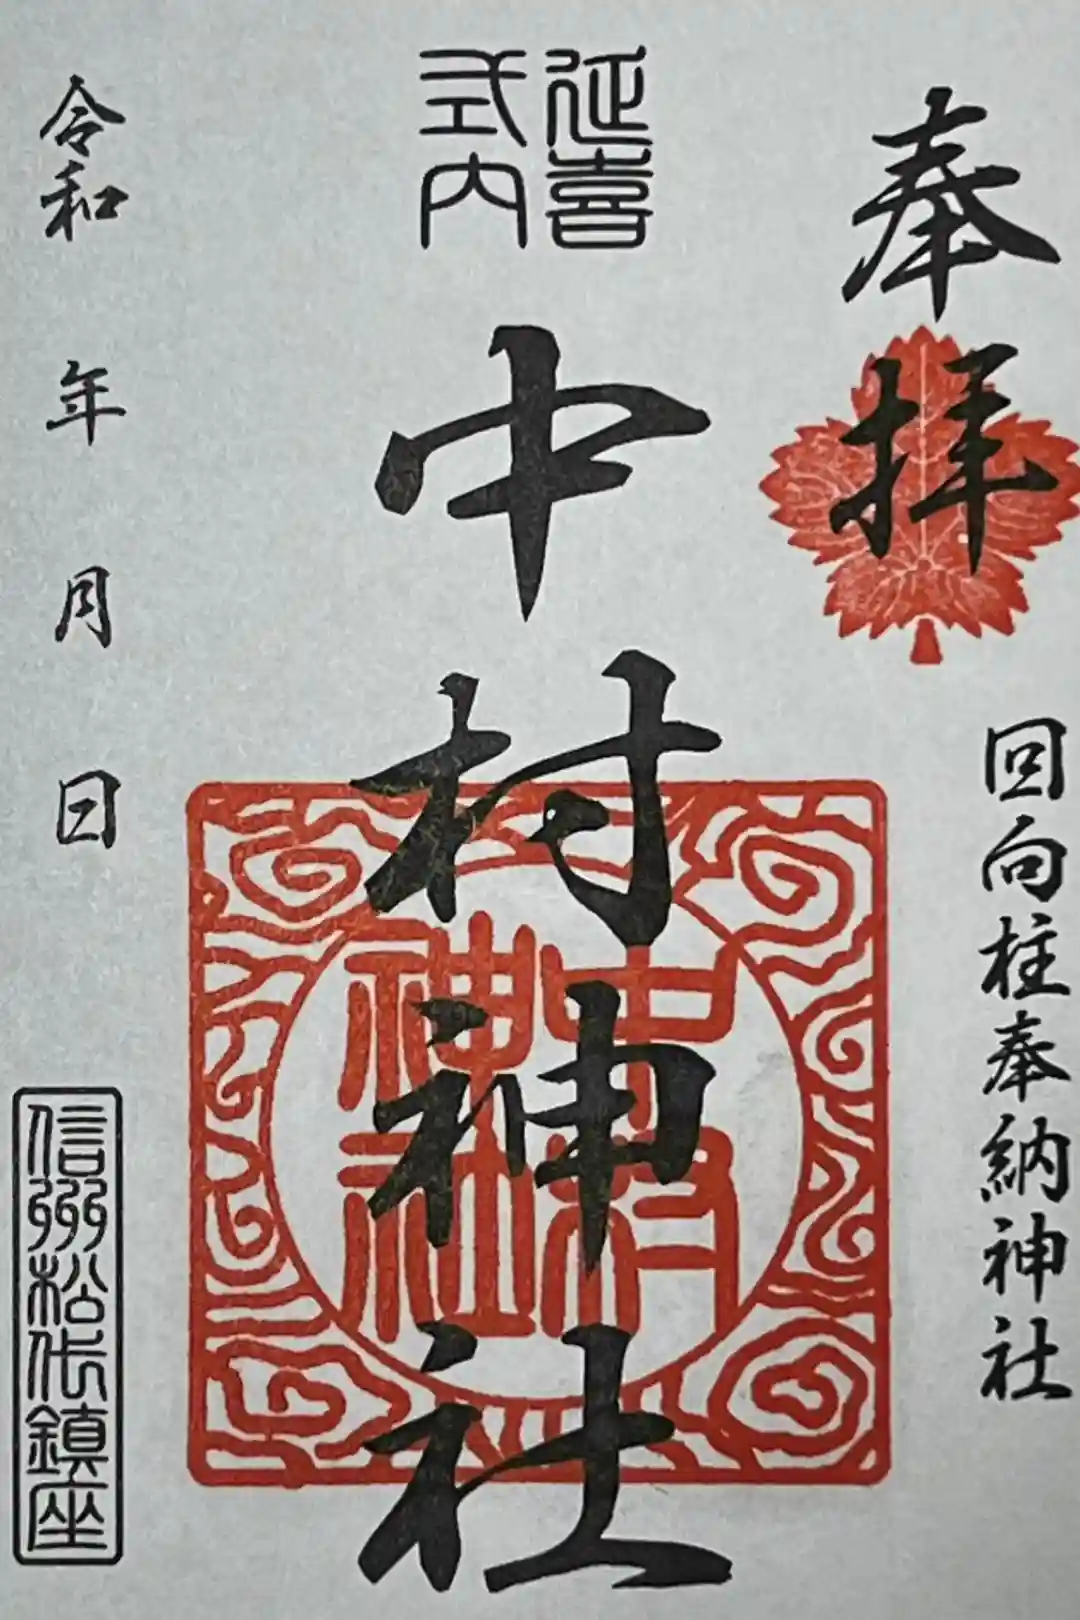 奉拝
回向柱奉納神社
延喜
式内
中村神社
中村
神社
令和 年 月 日
信州松代鎮座